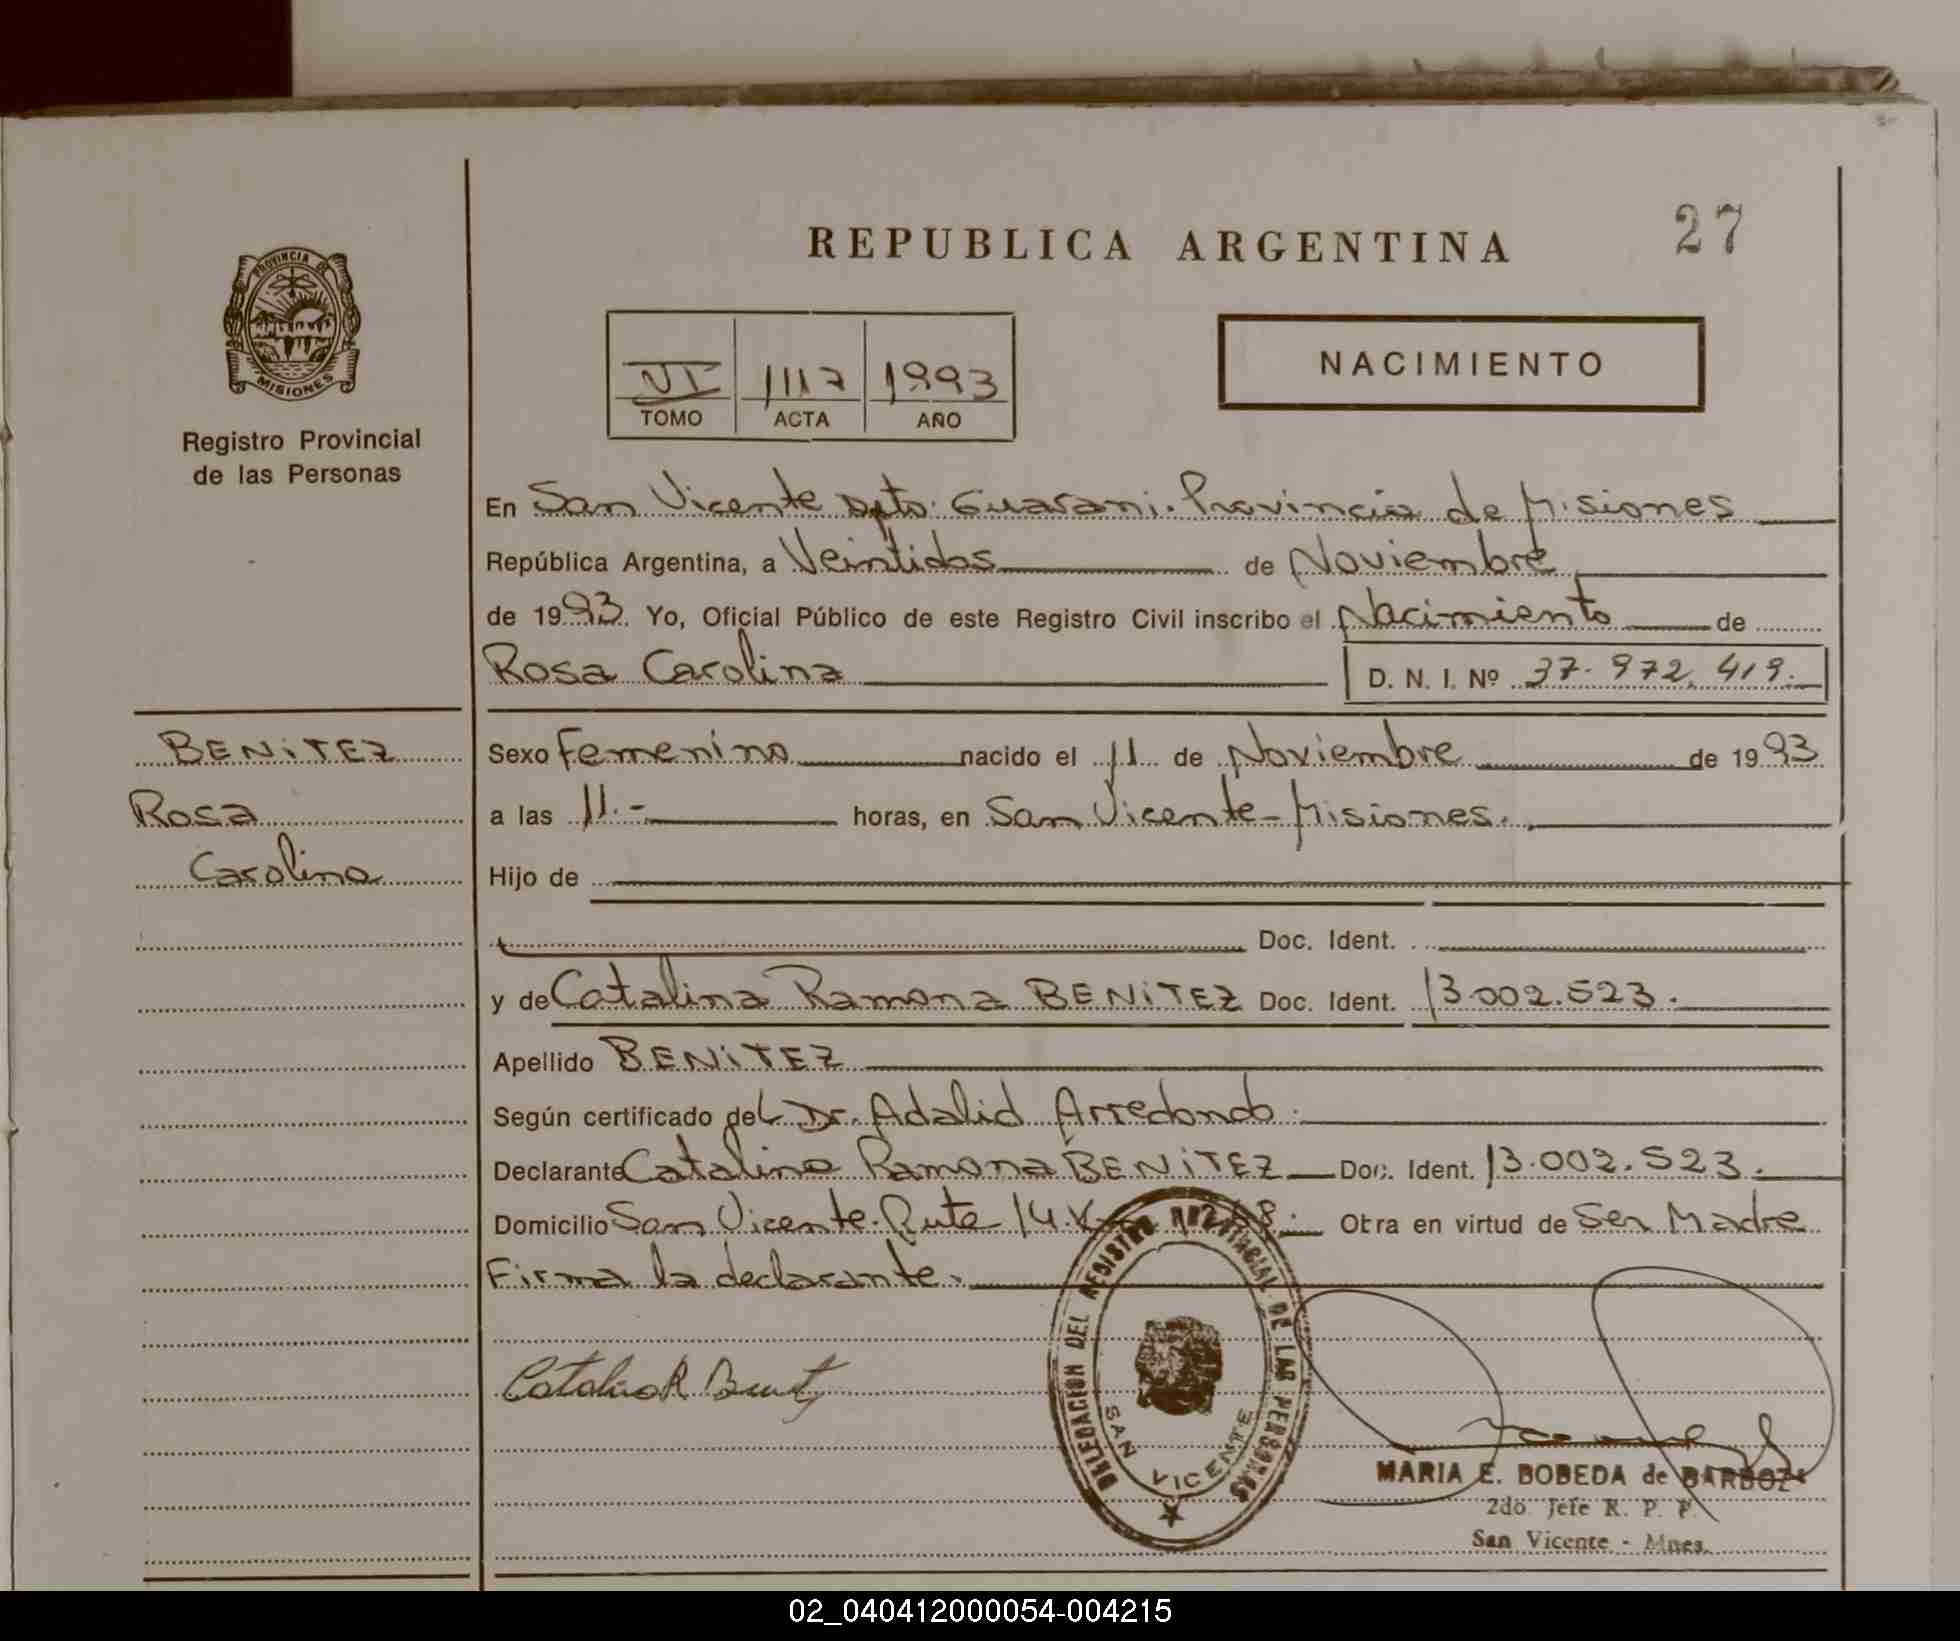 REPUBLICA ARGENTINA
27
PROVINCIA DE
MISIONES
Registro Provincial
de las Personas
VI 1117 1993
TOMO ACTA AÑO
NACIMIENTO
En San Vicente Dpto. Guarani. Provincia de Misiones
República Argentina, a Veintidos de Noviembre
de 1993. Yo, Oficial Público de este Registro Civil inscribo el Nacimiento de
Rosa Carolina D. N. I. Nº 37.972.419.
BENITEZ
Rosa
Carolina
Sexo Femenino nacido el 11 de Noviembre de 1993
a las 11.- horas, en San Vicente - Misiones.
Hijo de
Doc. Ident.
y de Catalina Ramona BENITEZ Doc. Ident. 13.002.523.
Apellido BENITEZ
Según certificado del Dr. Adalid Arredondo.
Declarante Catalina Ramona BENITEZ Doc. Ident. 13.002.523.
Domicilio San Vicente. Ruta 14. Otra en virtud de Ser Madre
Firma la declarante.
Catalina R Benit
DELEGACION DEL REGISTRO PROVINCIAL DE LAS PERSONAS
SAN VICENTE
MARIA E. BOBEDA de BARBOZA
2do Jefe R. P. P.
San Vicente - Mnes.
02_040412000054-004215